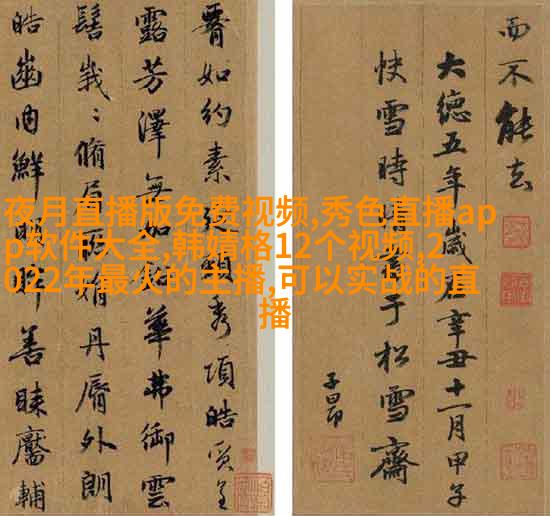 夜月直播版免费视频,秀色直播ap
p软件大全,韩婧格12个视频,2
022年最火的主播,可以实战的直
播
而不能去
大德五年歲在辛丑十一月甲子
快雪時晴書于松雪齋
子昂
如約素延頸秀項皓質呈
露芳澤無加華弗御雲
髻峩〻脩眉娟丹脣外朗
皓齒內鮮明善睞靨輔